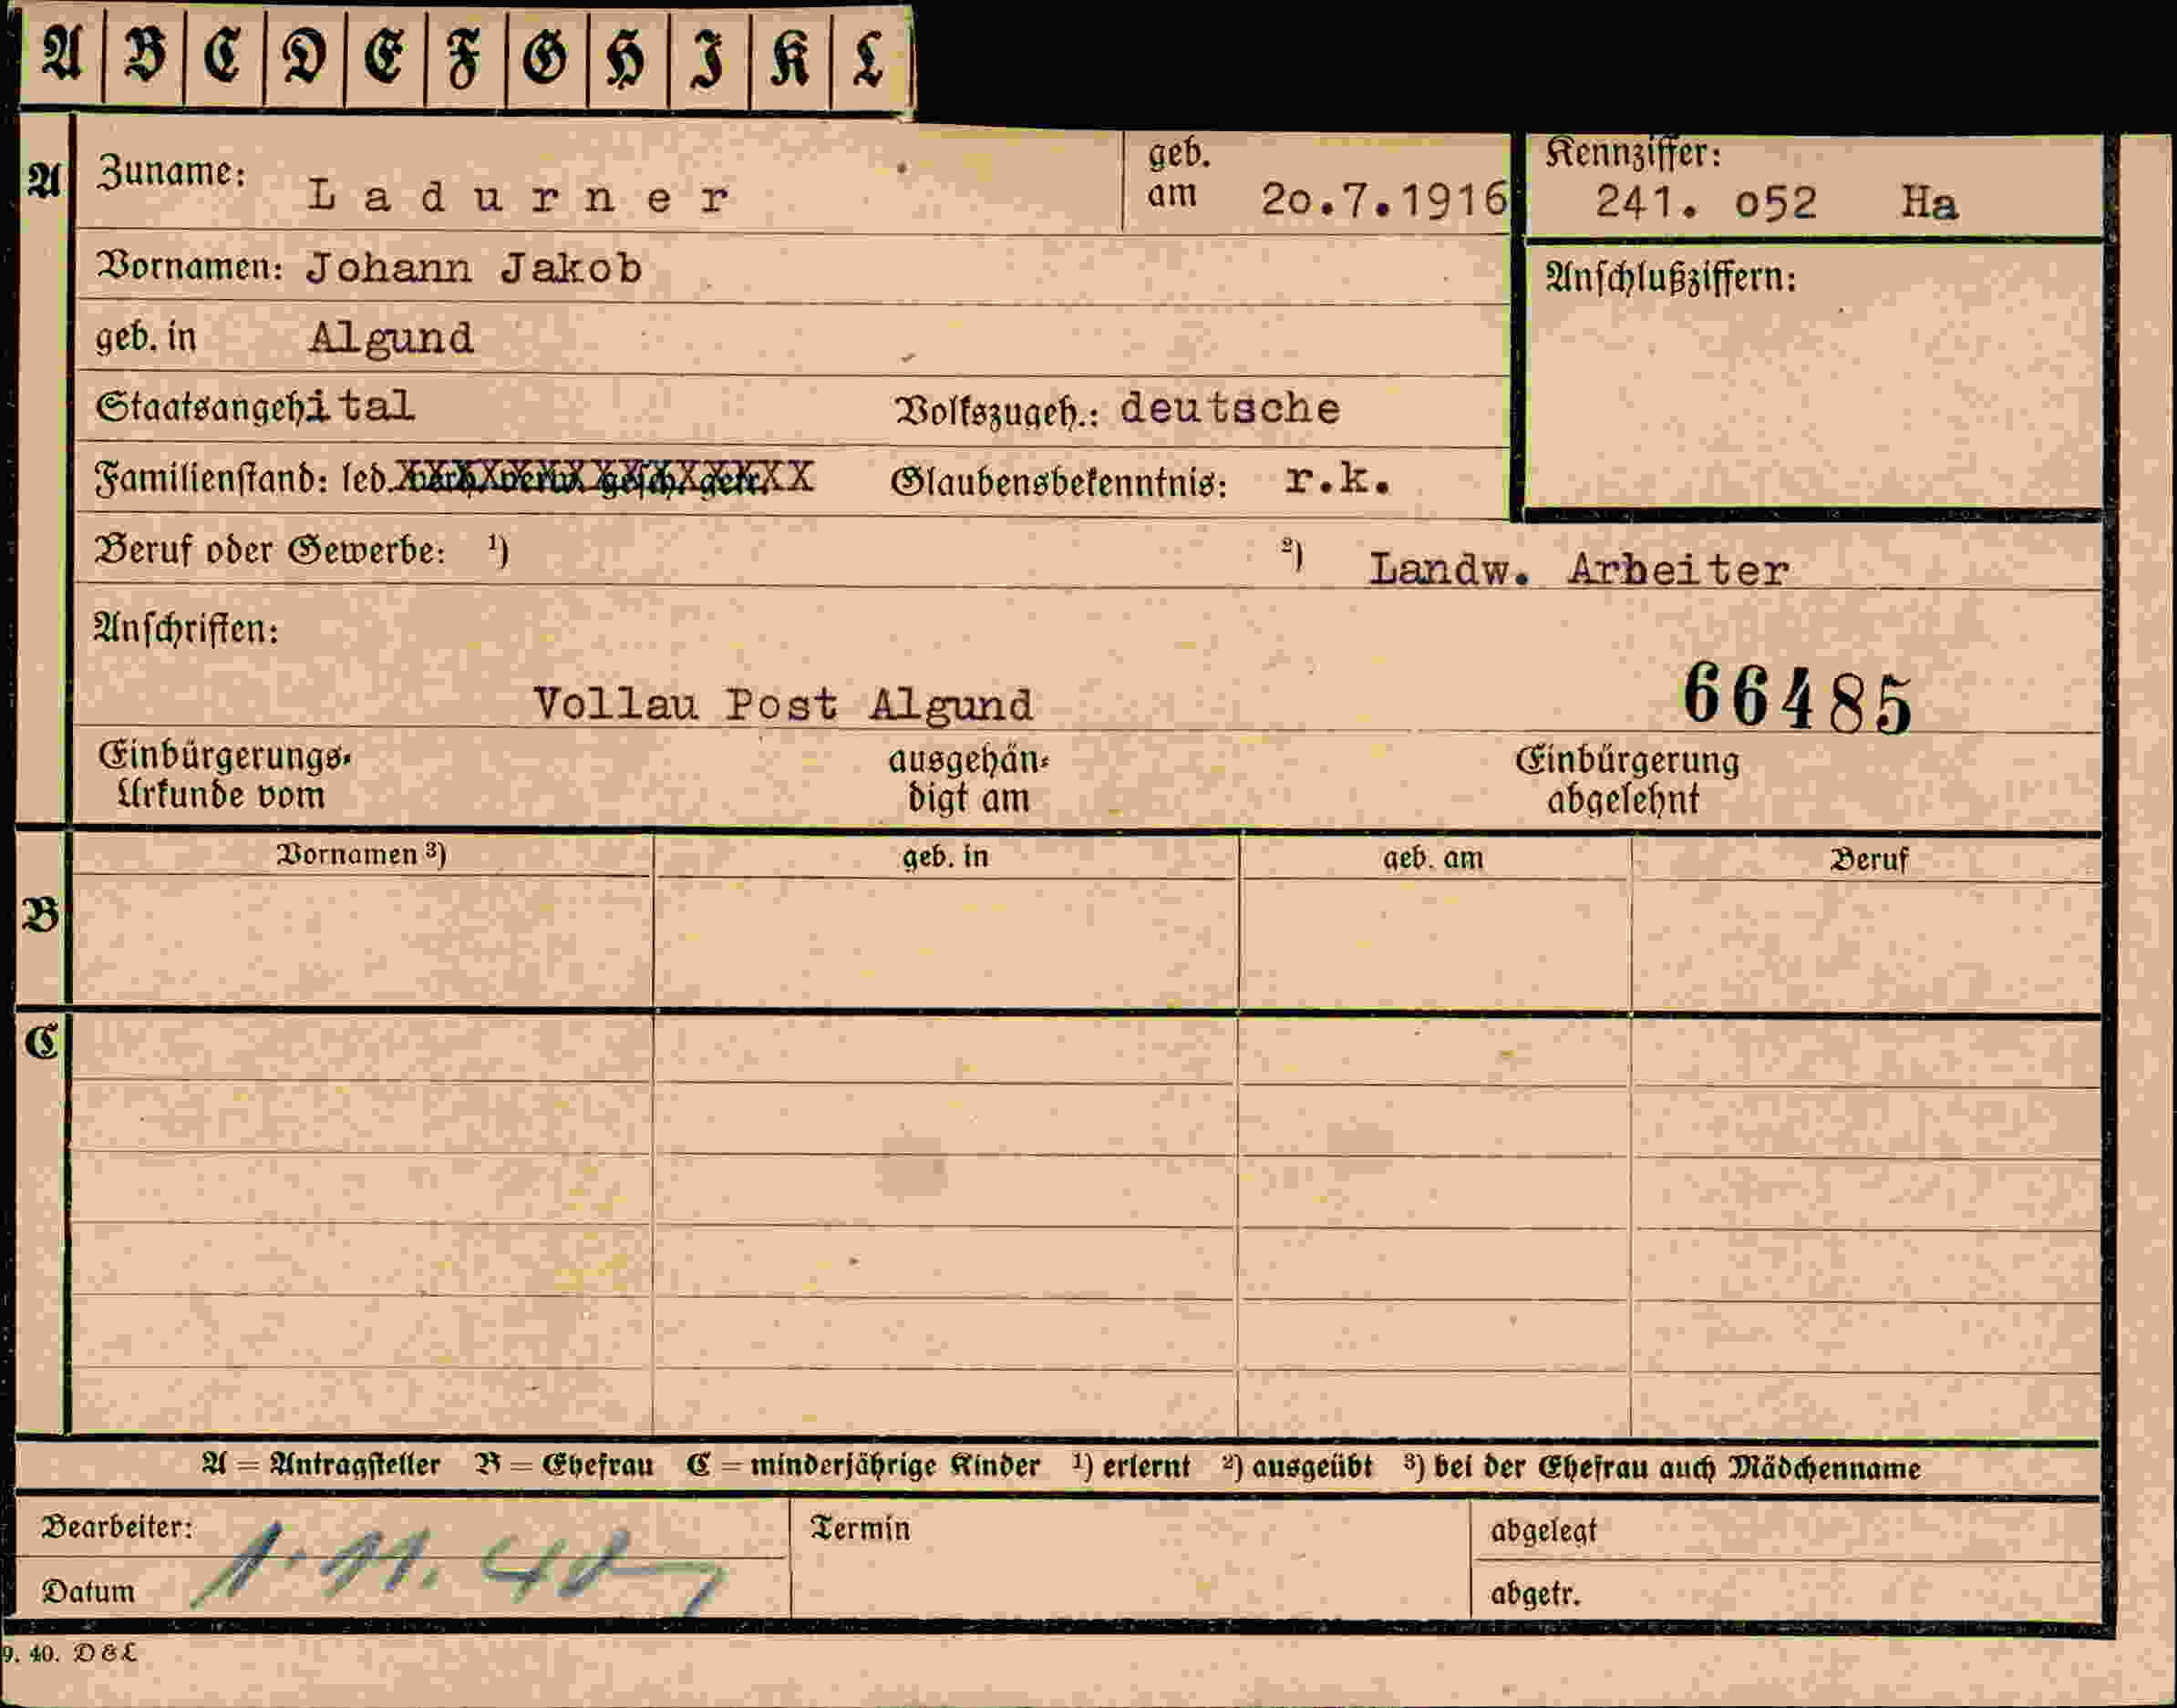 A B C D E F G H I K L
A Zuname: Ladurner geb. am 20.7.1916 Kennziffer: 241. o52 Ha
Vornamen: Johann Jakob Anschlußziffern:
geb. in Algund
Staatsangeh ital Volkszugeh.: deutsche
Familienstand: led. verh. verw. gesch. getr. Glaubensbekenntnis: r.k.
Beruf oder Gewerbe: ¹) ²) Landw. Arbeiter
Anschriften:
Vollau Post Algund 66485
Einbürgerungs- ausgehän- Einbürgerung
Urkunde vom digt am abgelehnt
Vornamen ³) geb. in geb. am Beruf
B
C
A = Antragsteller B = Ehefrau C = minderjährige Kinder ¹) erlernt ²) ausgeübt ³) bei der Ehefrau auch Mädchenname
Bearbeiter: Termin abgelegt
Datum 1.11.40 abgetr.
9. 40. D & L